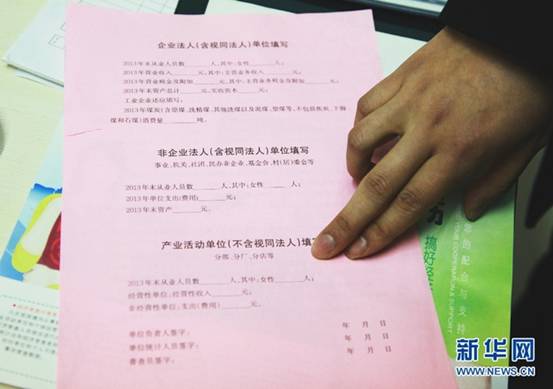 企业法人(含视同法人)单位填写
2013年末从业人员数______人,其中:女性______人
2013年营业收入______元,其中:主营业务收入______元
2013年营业税金及附加______元,其中:主营业务税金及附加______元
2013年末资产总计______元,实收资本______元
工业企业还应填写:
2013年煤炭(含原煤、洗精煤、其他洗煤以及泥煤、型煤等,不包括焦炭、下脚
煤和石煤)消费量______吨。
非企业法人(含视同法人)单位填写
事业、机关、社团、民办非企业、基金会、村(居)委会等
2013年末从业人员数______人,其中:女性______人
2013年单位支出(费用)______元
2013年末资产______元
产业活动单位(不含视同法人)填
分部、分厂、分店等
2013年末从业人员数______人,其中:女性______人
经营性单位:经营性收入______元
非经营性单位:支出(费用)______元
单位负责人签字: 年 月 日
单位统计人员签字: 年 月 日
普查员签字: 年 月 日
搞好经
您的配合与支持
YOUR COOPERATION & SUPPORT
新华网
WWW.NEWS.CN